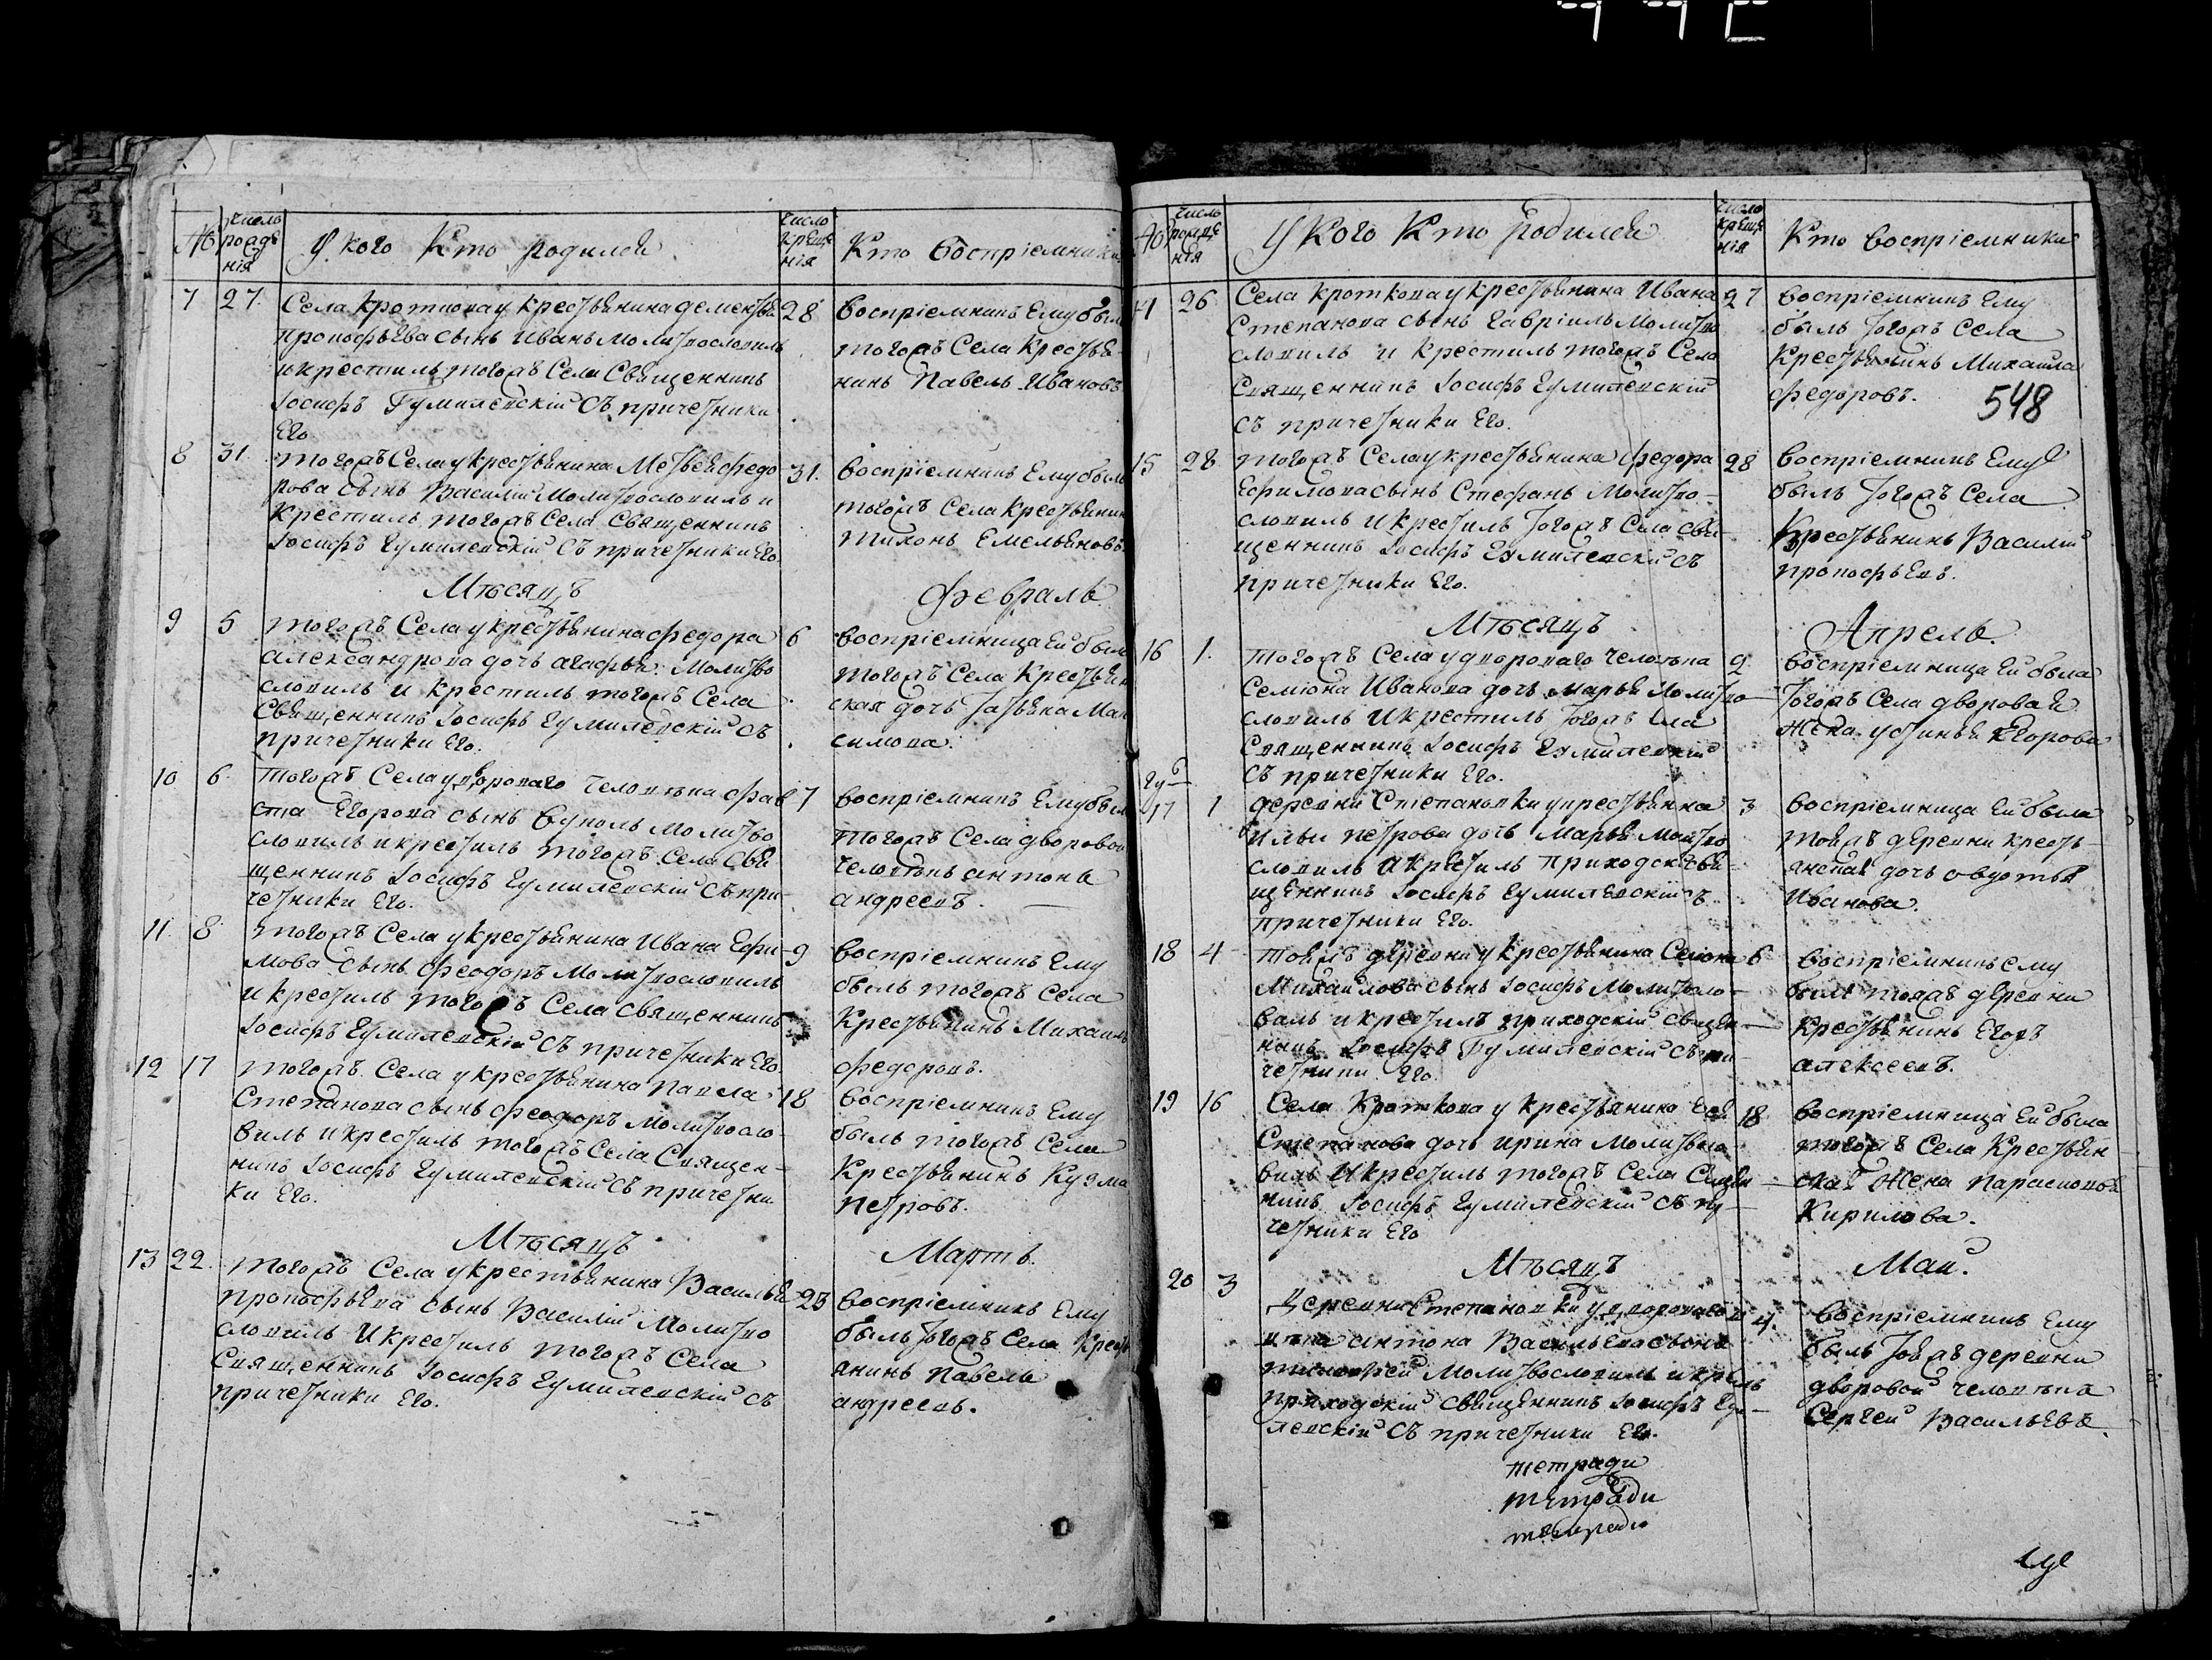 №
число рожденія
У кого Кто родился
число крещенія
Кто восприемники
7 27. Села Кроткова у крестьянина Дементья 28
Прокофьева сынъ Иванъ молитвословилъ
и крестилъ тогожъ Села Священникъ
Іосифъ Гумилевскій съ причетники
Его
воспріемникъ Ему былъ
тогожъ Села Крестья-
нинъ Павелъ Ивановъ
8 31. тогожъ Села у крестьянина Матвея Федо- 31.
рова сынъ Василій Молитвословилъ и
крестилъ тогожъ Села Священникъ
Іосифъ Гумилевскій съ причетники Его
воспріемникъ Ему былъ
тогожъ Села крестьянин
Тихонъ Емельяновъ.
Мѣсяцъ Февраль
9 5 тогожъ Села у крестьянина Федора 6
Александрова дочь Агафья. Молитво
словилъ и крестилъ тогожъ Села
Священникъ Іосифъ Гумилевскій съ
причетники Его.
воспріемница Ей была
тогожъ Села Крестьян
ская дочь Татьяна Мак
симова.
10 6. тогожъ Села у двороваго человѣка Фав 7
ста Егорова сынъ Вуколъ Молитво
словилъ и крестилъ тогожъ Села Свя
щенникъ Іосифъ Гумилевскій съ при-
четники Его.
воспріемникъ Ему был
тогожъ Села дворовой
человѣкъ Антонъ
Андреевъ.
11. 8. тогожъ Села у крестьянина Ивана Ефи- 9
мова сынъ Феодоръ Молитвословилъ
и крестилъ тогожъ Села Священникъ
Іосифъ Гумилевскій съ причетники Его
воспріемникъ Ему
былъ тогожъ Села
Крестьянинъ Михаилъ
Федоровъ.
12 17 тогожъ Села у крестьянина Павла 18
Степанова сынъ Феодоръ Молитвосло-
вилъ и крестилъ тогожъ Села Священ-
никъ Іосифъ Гумилевскій съ причетни
ки Его.
воспріемникъ Ему
былъ тогожъ Села
Крестьянинъ Кузма
Петровъ.
Мѣсяцъ Мартъ.
13 22. тогожъ Села у крестьянина Василья 23
Прокофьева сынъ Василій Молитво
словилъ и крестилъ тогожъ Села
Священникъ Іосифъ Гумилевскій съ
причетники Его.
воспріемникъ Ему
былъ тогожъ Села Кресть
янинъ Павелъ
Андреевъ.
№
число рожденія
У Кого Кто родился
число крещенія
Кто воспріемники
26 Села Кроткова у крестьянина Ивана 27
Степанова сынъ Гавріилъ Молитво
словилъ и крестилъ тогожъ Села
Священникъ Іосифъ Гумилевскій
съ причетники Его.
воспріемникъ Ему
былъ тогожъ Села
Крестьянинъ Михаила
Федоровъ.
548
15 28. тогожъ Села у крестьянина Федора 28
Ефимова сынъ Стефанъ Молитво-
словилъ и крестилъ тогожъ Села Свя-
щенникъ Іосифъ Гумилевскій съ
причетники Его.
воспріемникъ Ему
былъ тогожъ Села
Крестьянинъ Василій
Прокофьевъ.
Мѣсяцъ Апрель.
16 1. тогожъ Села у двороваго человѣка 2.
Семіона Иванова дочь Марья Молитво-
словилъ и крестилъ тогожъ Села
Священникъ Іосифъ Гумилевскій
съ причетники Его.
воспріемница Ей была
тогожъ Села дворовая
Жена Устинья Егорова
17 1 деревни Степановки у крестьянина 3
Ильи Петрова дочь Марья Молитво
словилъ и крестилъ приходскій Свя
щенникъ Іосифъ Гумилевскій съ
причетники Его.
воспріемница Ей была
тойжъ деревни кресть-
янская дочь Овдотья
Иванова.
18 4 тойжъ деревни у крестьянина Семіона 6
Михайлова сынъ Іосифъ Молитвосло-
вилъ и крестилъ приходскій Священ-
никъ Іосифъ Гумилевскій съ при-
четники Его.
воспріемникъ ему
былъ тойжъ деревни
Крестьянинъ Егоръ
Алексеевъ.
19 16 Села Кроткова у крестьянина 18
Степанова дочь Ирина Молитвосло-
вилъ и крестилъ тогожъ Села Священ-
никъ Іосифъ Гумилевскій съ при-
четники Его
воспріемница Ей была
тогожъ Села Крестьян
ская Жена Парасковья
Кирилова.
Мѣсяцъ Май.
20 3 Деревни Степановки у двороваго 4.
Антона Васильева сынъ
Тимофей Молитвословилъ и
приходскій Священникъ Іосифъ
левскій съ причетники Его.
воспріемникъ Ему
былъ тойжъ деревни
дворовой человѣкъ
Сергей Васильевъ.
тетради
тетради
тетради